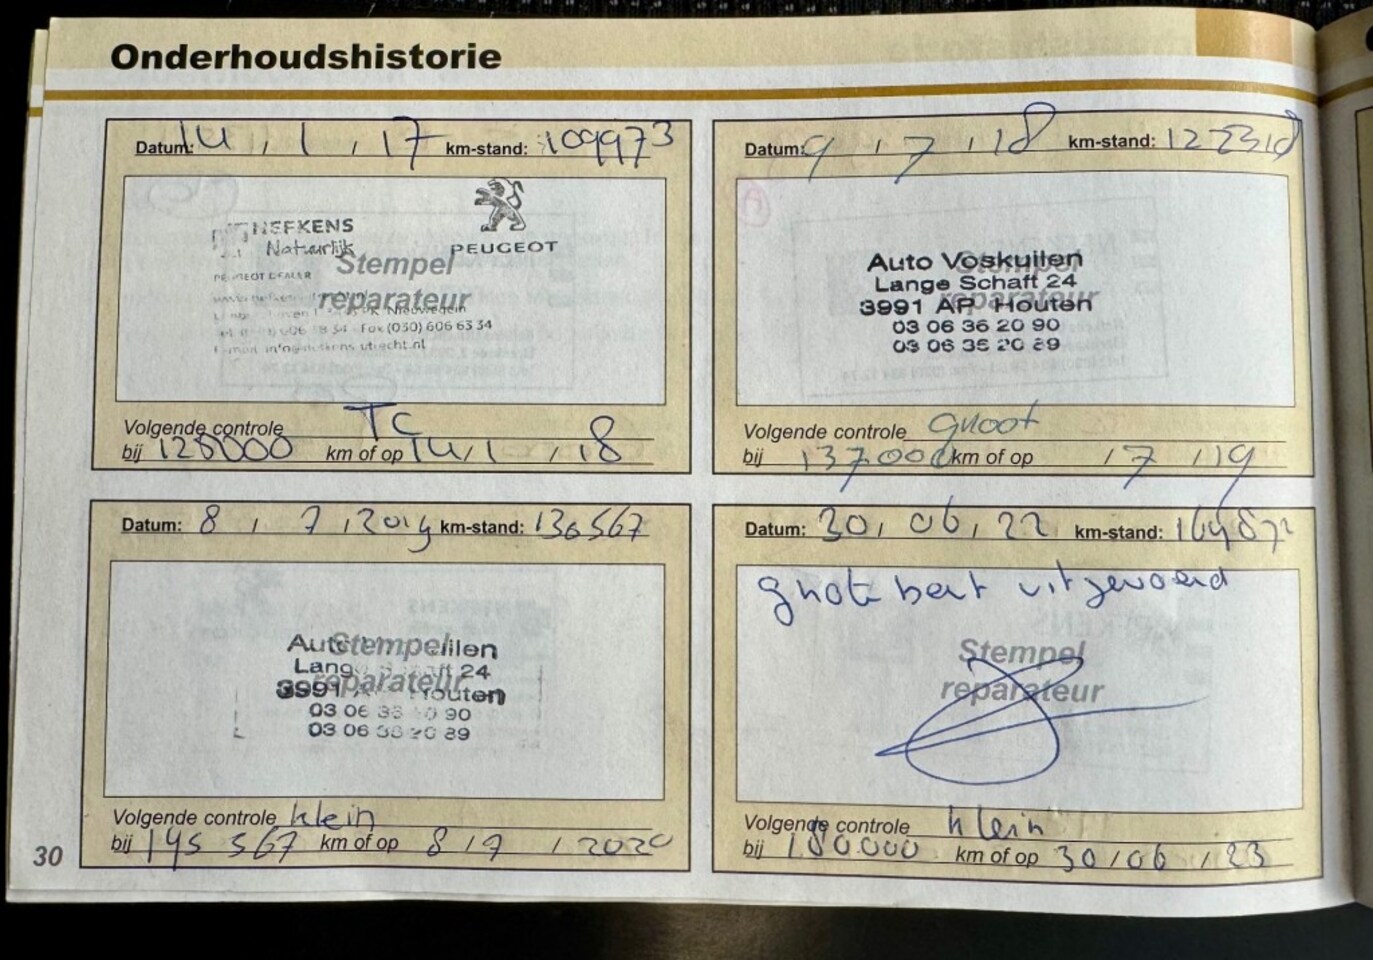 Onderhoudshistorie
Datum: 14 , 1 , 17 km-stand: 109973
NEFKENS
Natuurlijk
PEUGEOT
PEUGEOT DEALER
Stempel
reparateur
Nieuwegein
Fax (030) 606 63 34
utrecht.nl
Volgende controle TC
bij 120000 km of op 14 , 1 , 18
Datum: 9 , 7 , 18 km-stand:
Stempel
reparateur
Auto Voskuilen
Lange Schaft 24
3991 AP Houten
03 06 36 20 90
03 06 36 20 89
Volgende controle groot
bij 137000 km of op , 7 , 19
Datum: 8 , 7 , 2019 km-stand: 130567
Stempel
reparateur
Lange Schaft 24
3991 Houten
03 06 36 20 90
03 06 36 20 89
Volgende controle klein
bij 145 567 km of op 8 , 7 , 2020
Datum: 30 , 06 , 22 km-stand:
grote beurt uitgevoerd
Stempel
reparateur
Volgende controle klein
bij 180000 km of op 30 , 06 , 23
30